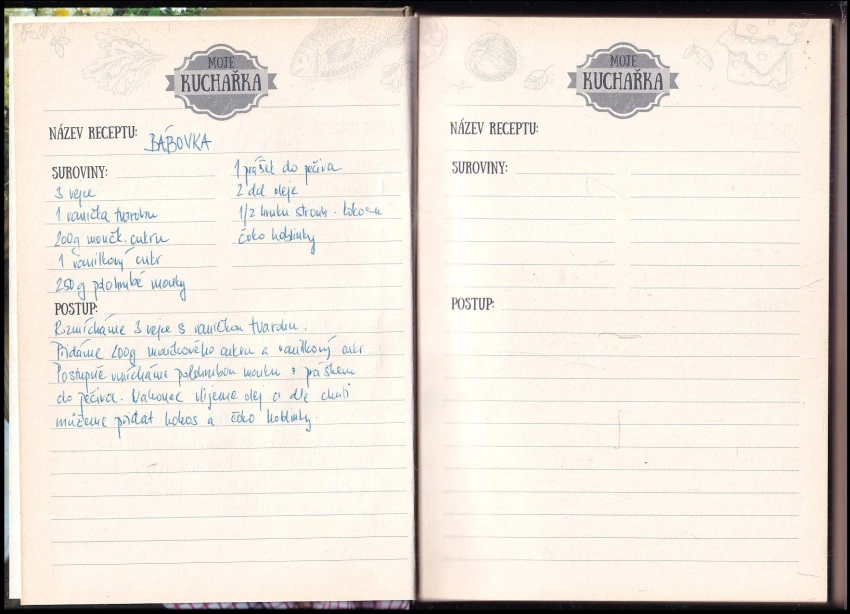 MOJE
KUCHAŘKA
NÁZEV RECEPTU: BÁBOVKA
SUROVINY:
3 vejce
1 vanička tvarohu
200g moučk. cukru
1 vanilkový cukr
250g polohrubé mouky
1 prášek do pečiva
2 dcl oleje
1/2 hrnku strouh. kokosu
čoko hoblinky
POSTUP:
Rozmícháme 3 vejce s vaničkou tvarohu.
Přidáme 200g moučkového cukru a vanilkový cukr.
Postupně vmícháme polohrubou mouku s práškem
do pečiva. Nakonec vlijeme olej a dle chuti
můžeme přidat kokos a čoko hoblinky.
MOJE
KUCHAŘKA
NÁZEV RECEPTU:
SUROVINY:
POSTUP: